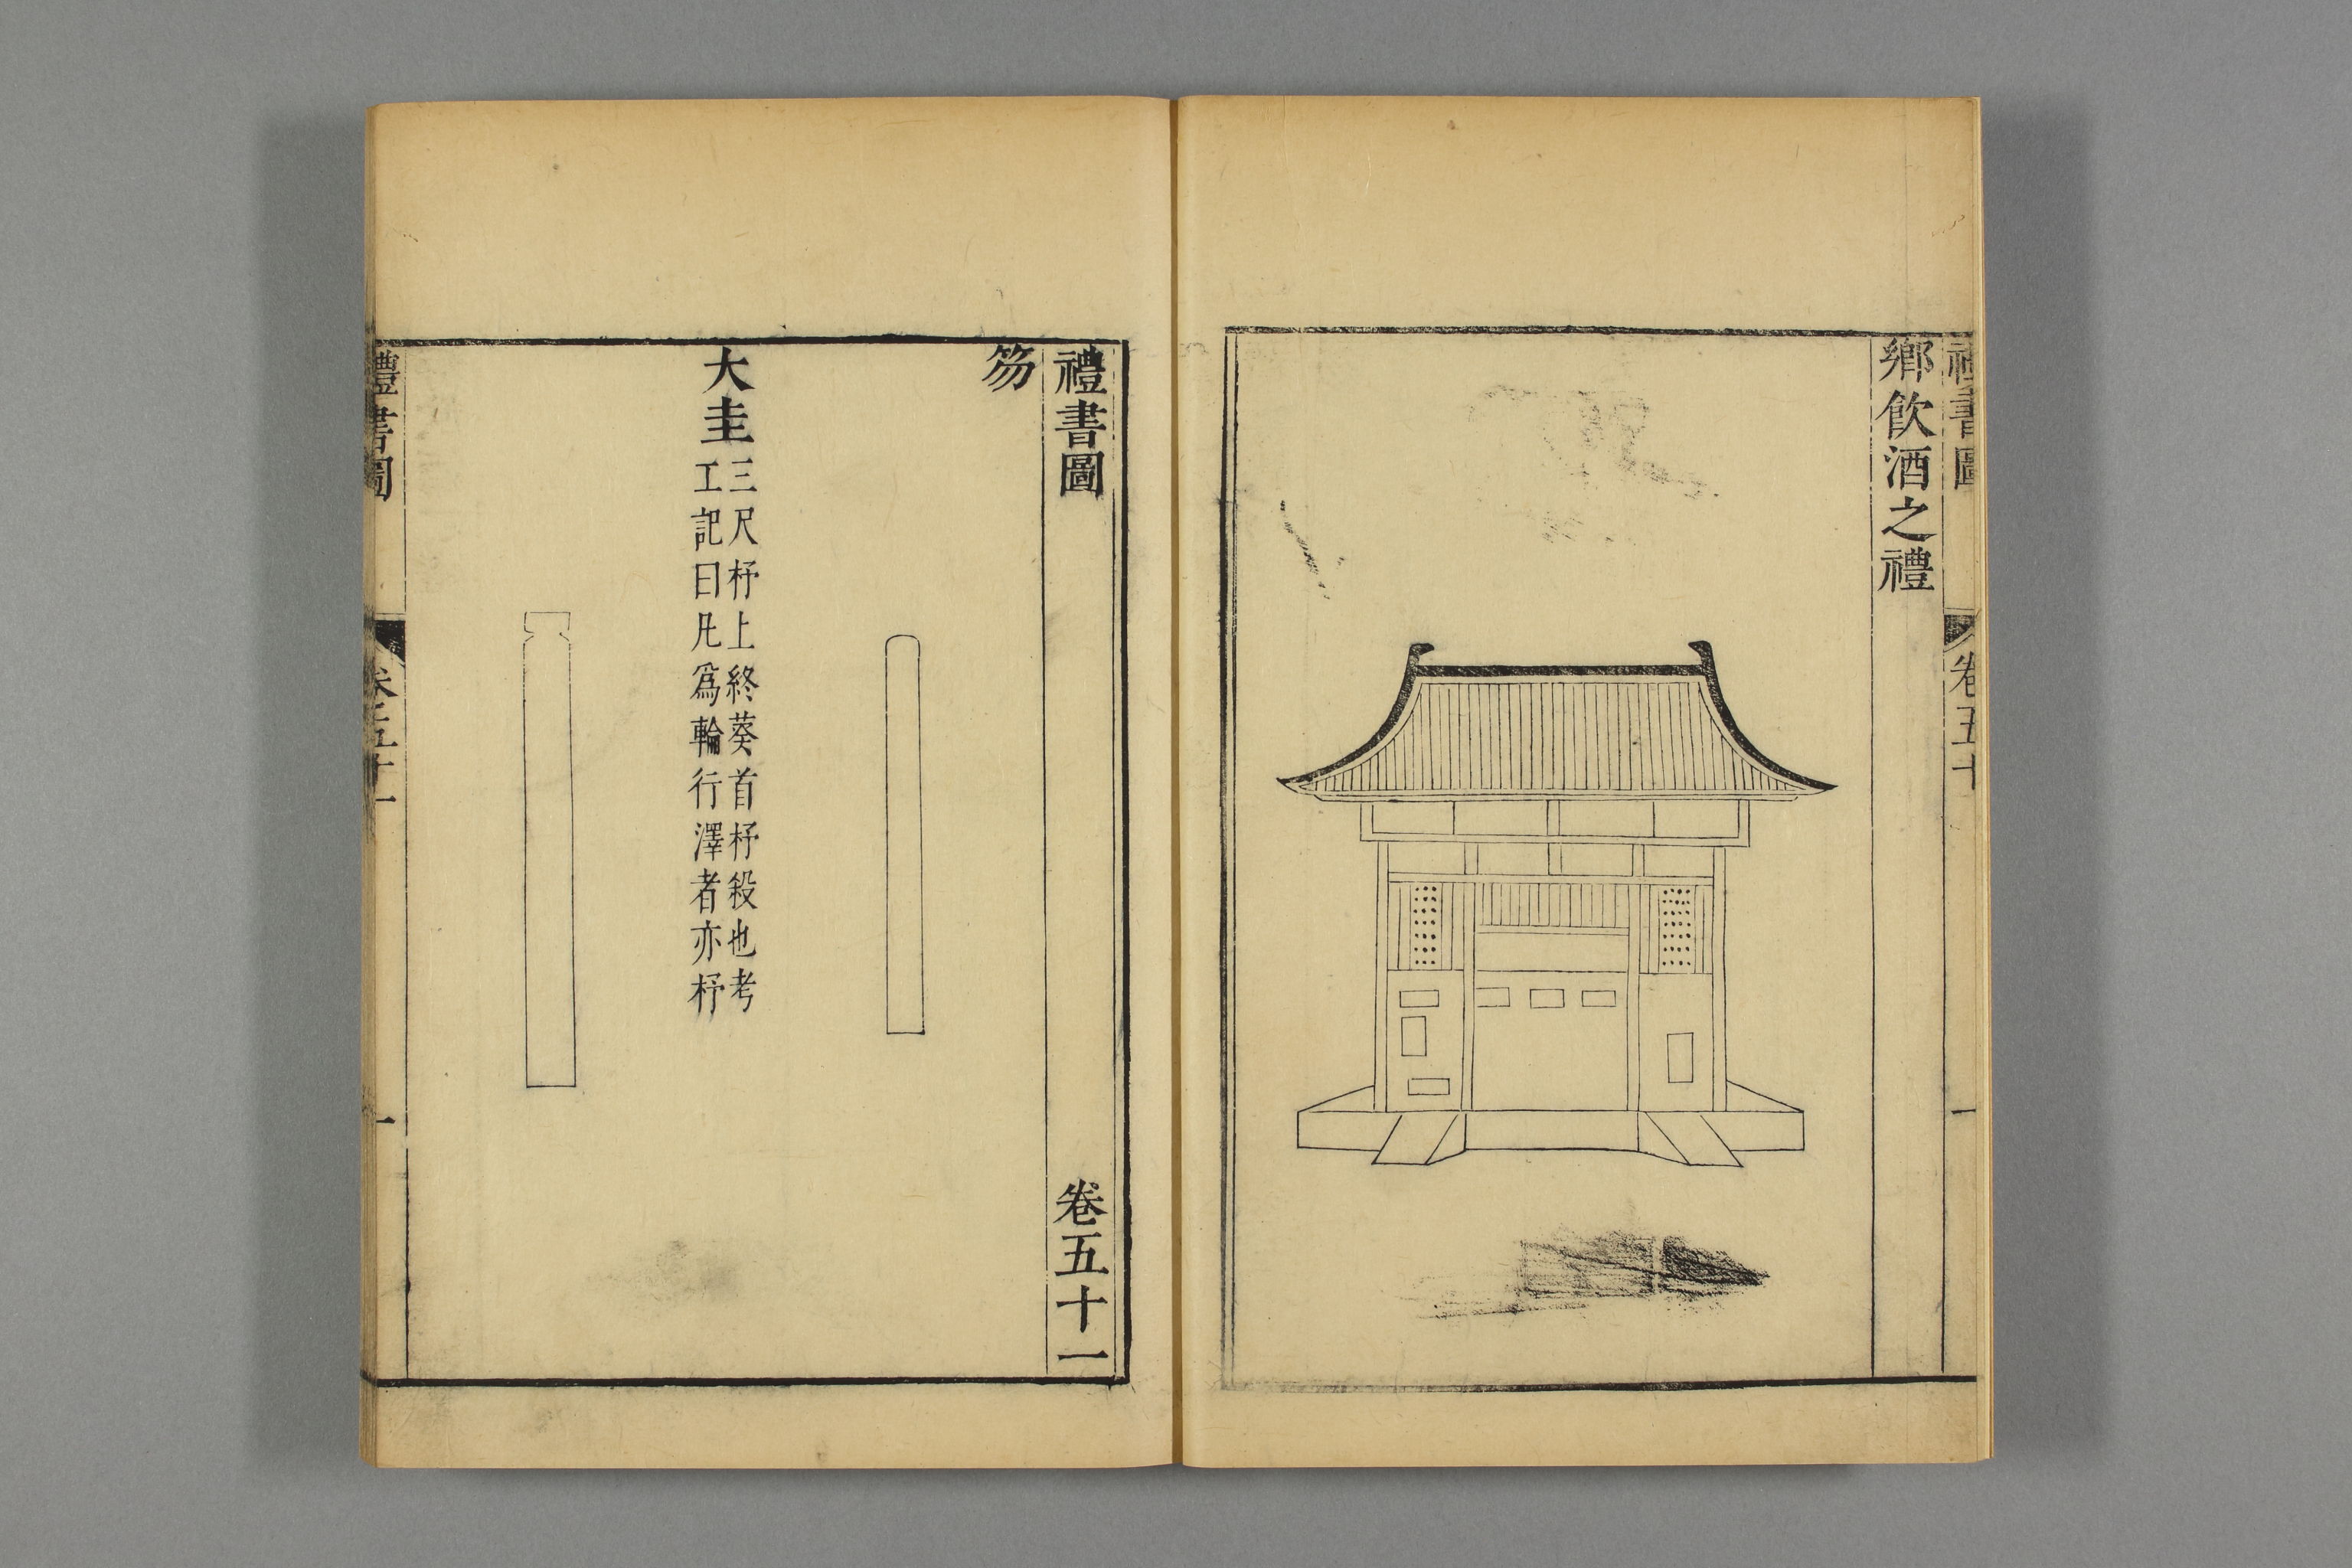 禮書圖
卷五十
一
鄉飲酒之禮
禮書圖 卷五十一
笏
大圭
三尺杼上終葵首杼殺也考
工記曰凡為輪行澤者亦杼
禮書圖
卷五十一
一